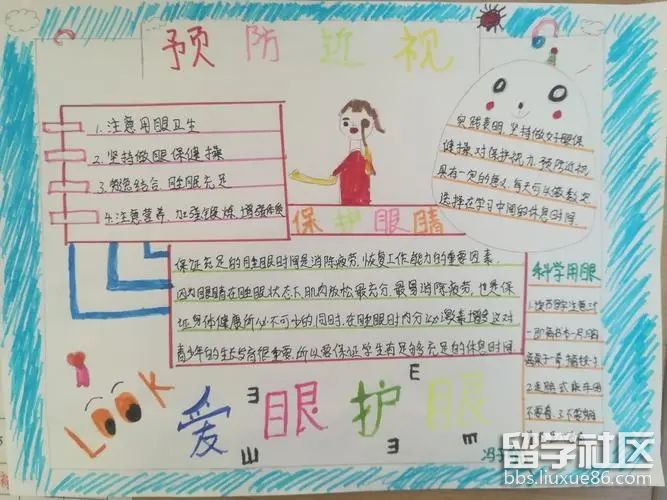 预防近视
1.注意用眼卫生
2.坚持做眼保健操
3.劳逸结合,睡眠充足
4.注意营养,加强锻炼,增强体质
保护眼睛
实践表明,坚持做好眼保
健操,对保护视力,预防近视
具有一定的意义,每天可以做数次
选择在学习中间的休息时间
保证充足的睡眠时间是消除疲劳,恢复工作能力的重要因素,
因为眼睛在睡眠状态下,肌肉放松最充分,最易消除疲劳,也是保
证身体健康所必不可少的同时,在睡眠时内分泌激素增多这对
青少年的生长发育很重要,所以要保证学生有足够充足的休息时间
科学用眼
2.走路 乘车
不要看 3.不要躺
LOOK
爱眼护眼
E
E
E
E
E
留学社区
bbs.liuxue86.com